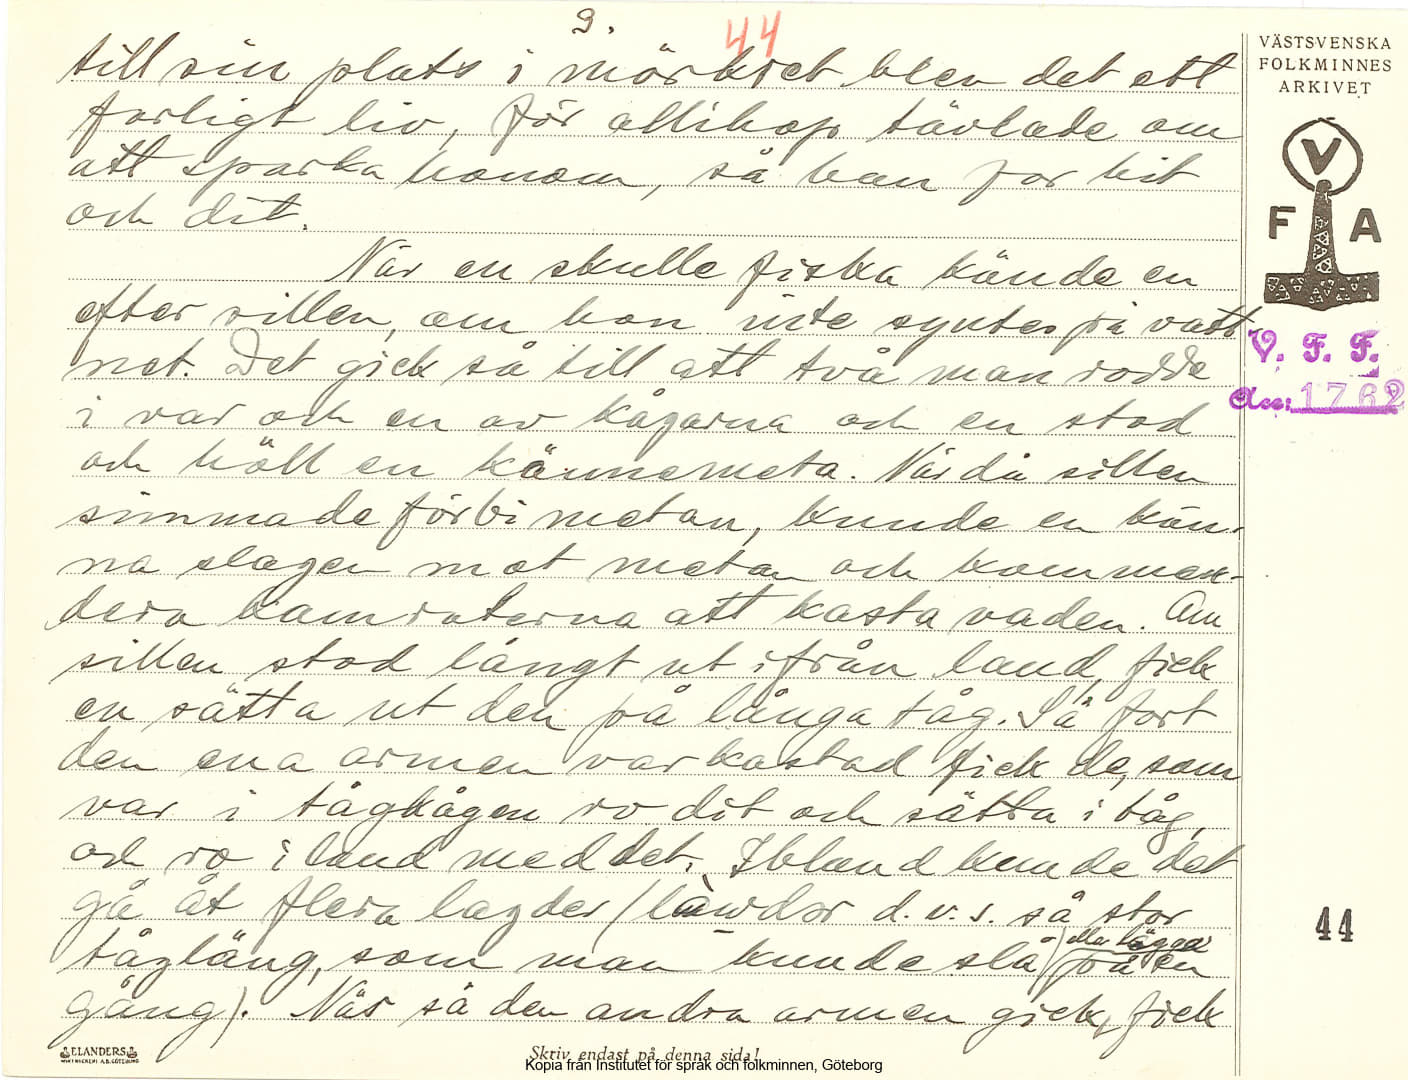 9.
44
till sin plats i mörkret blev det ett
farligt liv, för allihop tävlade om
att sparka honom, så han for hit
och dit.
När en skulle fiska kände en
efter sillen, om han inte syntes på vatt
net. Det gick så till att två man rodde
i var och en av kågarna och en stod
och höll en kännemeta. När då sillen
simmade förbi metan, kunde en kän-
na slagen mot metan och kommen-
dera kamraterna att kasta vaden. Om
sillen stod långt ut ifrån land, fick
en sätta ut den på långa tåg. Så fort
den ena armen var kastad fick de, som
var i tågkågen ro dit och sätta i tåg,
och ro i land med det. Ibland kunde det
gå åt flera lagder (làwdər d.v.s. så stor
tågläng, som man kunde slå (eller lägga) på en
gång). När så den andra armen gick, fick
VÄSTSVENSKA
FOLKMINNES
ARKIVET
V
F A
V. F. F.
Acc: 1762
44
ELANDERS
Skriv endast på denna sida!
Kopia från Institutet för språk och folkminnen, Göteborg